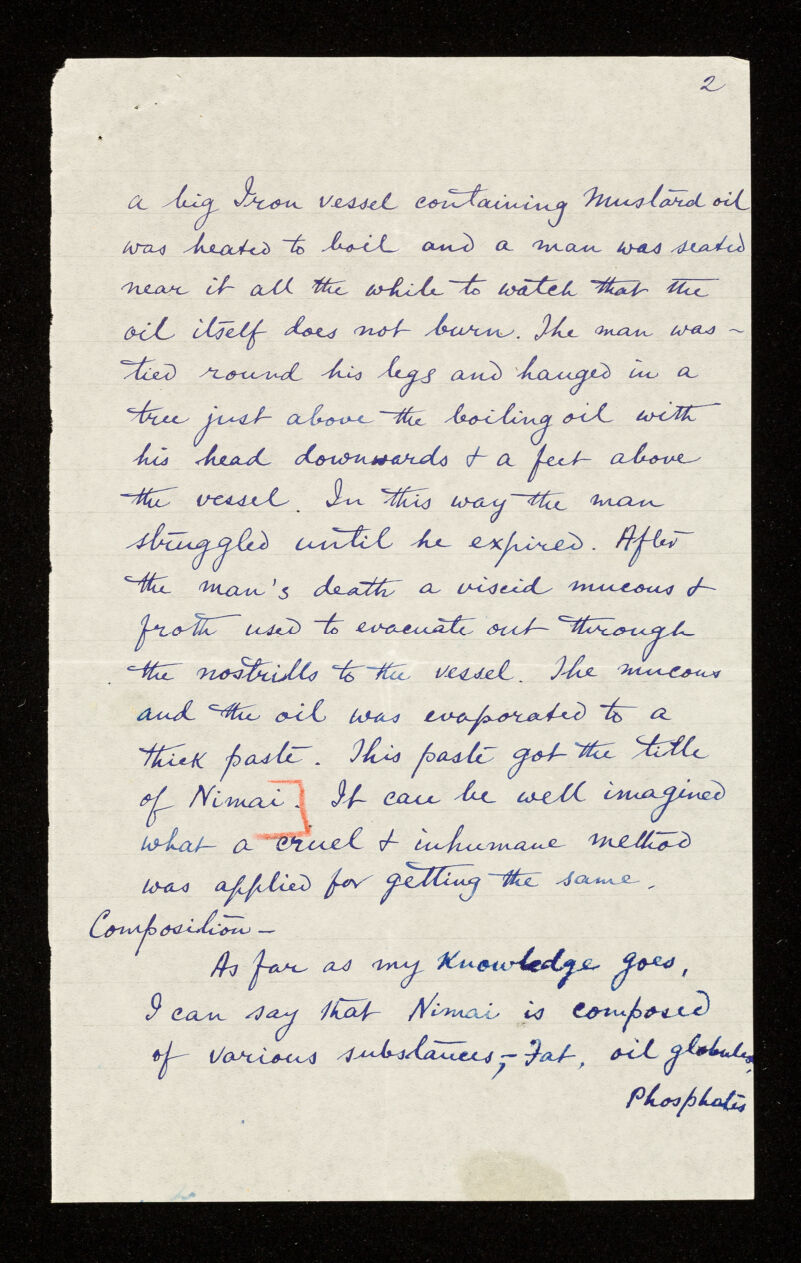 2
a big Iron vessel containing Mustard oil
was heated to boil and a man was seated
near it all the while to watch that the
oil itself does not burn. The man was ~
tied round his legs and hanged in a
tree just above the boiling oil with
his head downwards & a feet above
the vessel. In this way the man
struggled until he expired. After
the man's death a viscid mucous &
froth used to evacuate out through
the nostrills to the vessel. The mucous
and the oil was evaporated to a
thick paste. This paste got the title
of Nimai. It can be well imagined
what a cruel & inhumane method
was applied for getting the same.
Composition —
As far as my Knowledge goes,
I can say that Nimai is composed
of various substances;- Fat, oil globules,
Phosphates